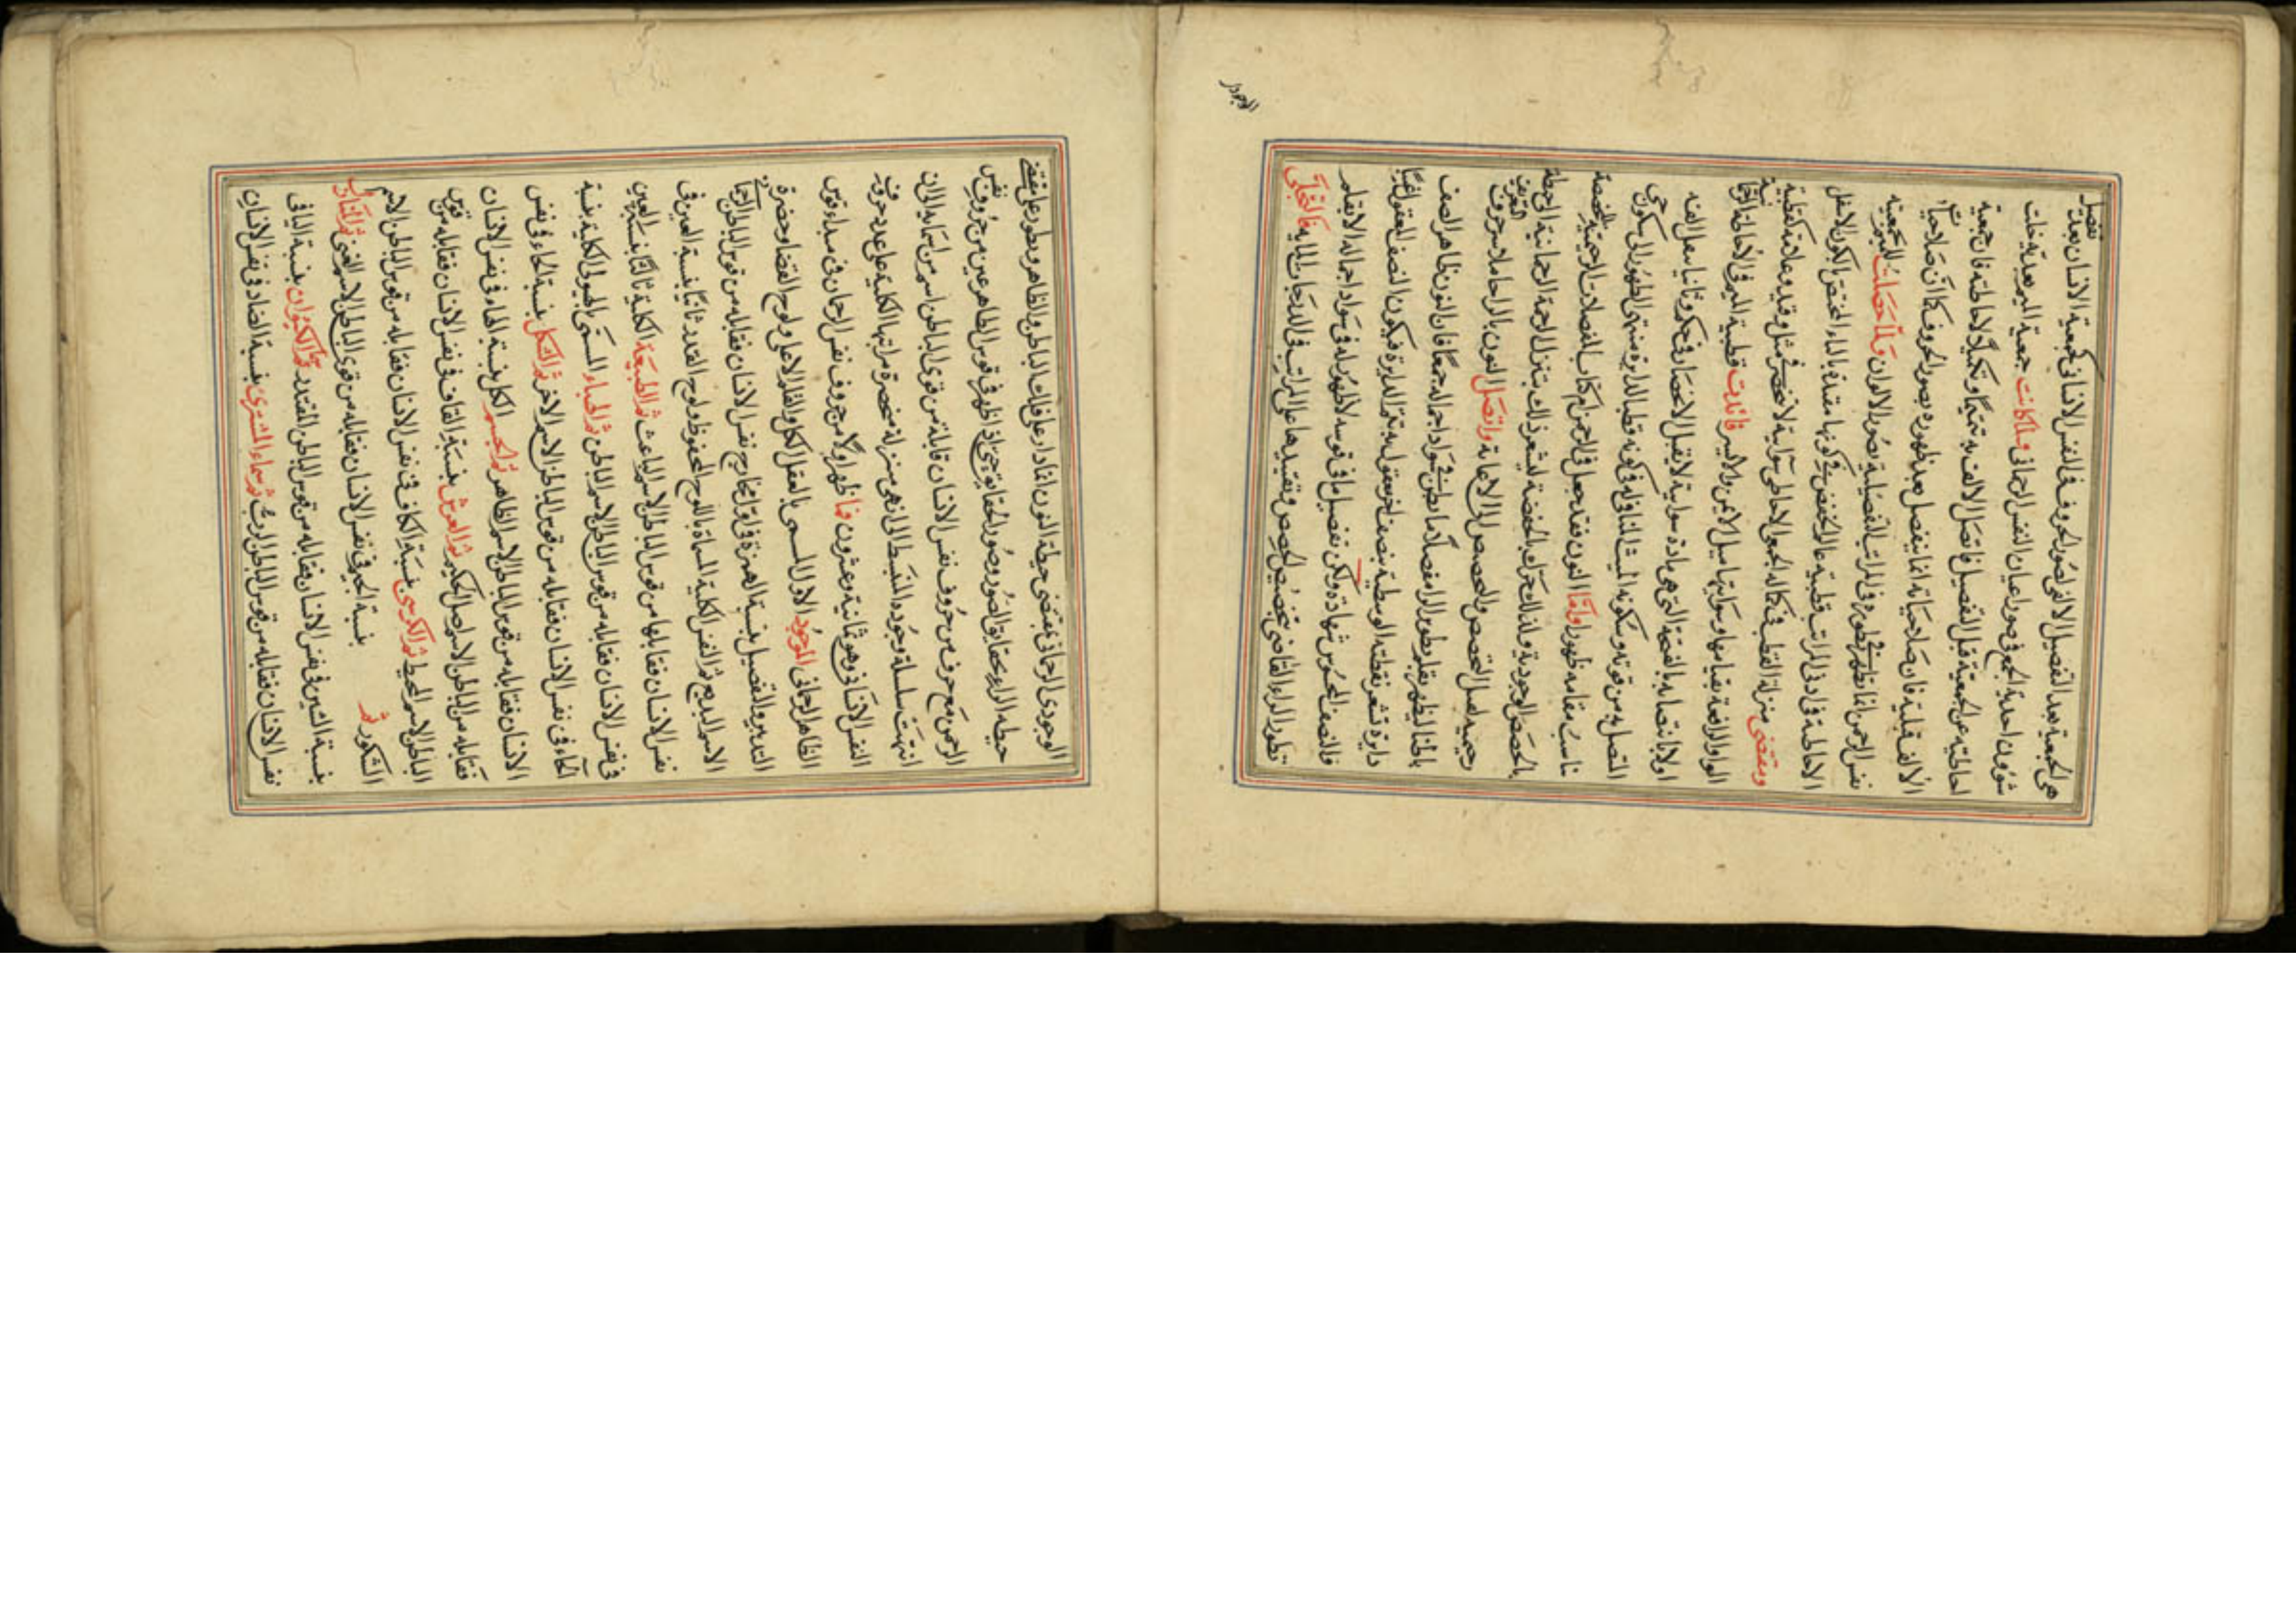 هى الجمعية بعد التفصيل الالفى لصور الحروف فى النفس الانسانى كجمعية الانسان بعد تفصيل
شؤون احدية الجمع فى صور اعيان النفس الرحمانى ولما كانت جمعية الميم بعدية خلت
احاطته عن الجمعية قبل التفصيل فاتصل الالف به تتميما وتكميلا لاحاطته فان جمعية
الالف قبلية فان صلاحياته انما ينفصل بعد ظهوره بصور الحروف كما ان صلاحيات
نفس الرحمن انما تظهر بتطوره فى المراتب التفصيلية بصور الالوان ولما حصلت للميم جمعية
الاحاطة فى ادنى المراتب قطبية عالم الخفض فى كونها مقيدة بالياء المختص بالكون الاسفل
ومقتضى منزلة القطب فى كماله الجمعى الاحاطى سوائية لا تنحصر فى ميل وقيد وعلامة كقطبية
الواو الرافعة بقيامها وسوائيتها ميل الايمن والايسر قطبية الميم فى الاحاطة
اولا باتصاله بالفتحة التى هى مادة سوائية لا يقبل الانحصار فى حكم وثانيا بعمل الفه
المتصل به من قوته وسكونه الميت النافى له فى كونه قطب الدائرة منتهى الظهور الى سكون حى
ناسب مقامه ظهورا واما النون فقد جعل فى الرحمن كتاب التفصيلات الرحيمية المخصصة
بالحصص الوجودية ولذلك تحرك بالخفضة ليشعر ذلك بتنزل الرحمة الرحمانية الى حيطة
رحيمية لعمل التخصص والحصص الى واتصل النون بالراء حاملا سر حروف التعريف
باطنا ليظهر بقلم طور الراء مفصلا ما بطن فى سواد اجماله جمعا فان النون ظاهر النصف
دايرة تشعر نقطته الوسطية بنصف اخر معقول به تتم الدايرة فيكون النصف المعقول غيبا
فالنصف المحسوس شهادة ولكن تفصيل ما فى قوسه لا ظهور له فى سواد اجماله الا بقلم
تطور الراء القاضى بتخصيص الحصص وتقييدها على المراتب فى الدرجات فالتجلى
الوجودى
الوجودى الرحمانى يقتضى حيطة النون اذا دار على فلك الباطن والظاهر وبطور على مقتضى
حيطة الراء بحقايق الصور وصور الحقايق حتى اذا ظهر فى قوس الظاهر عين من حروف نفس
الرحمن مع حرف من حروف نفس الانسان قابله من قوى الباطن اسم من اسمائه الى ان
انتهت سلسلة وجوده المنبسط الى منزلة منحصرة مراتبها الكلية على عدد حروف
النفس الانسانى وهو ثمانية وعشرون فما ظهر اولا من حروف نفس الرحمان فى مبداء قوس
الظاهر الرحمانى الموجود الاول المسمى بالعقل الكل والقلم الاعلى ولوح القضا وحضرة
التدبير والتفصيل بنسبة الهمزة فى اول مخارج نفس الانسان فقابله من قوس الباطن الرحمانى
الاسم البديع ثم النفس الكلية المسماة باللوح المحفوظ ولوح القدر ثانيا بنسبة فى
نفس الانسان فقابلها من قوس الباطن الاسم الباعث ثم الطبيعة الكلية ثالثا بنسبة العين
فى نفس الانسان فقابله من قوس الباطن الاسم الباطن ثم الهباء المسمى بالهيولى الكلية بنسبة
الحاء فى نفس الانسان فقابله من قوس الباطن الاسم الاخر ثم الشكل بنسبة الخاء فى نفس
الانسان فقابله من قوس الباطن الاسم الظاهر ثم الجسم الكل بنسبة فى نفس الانسان
فقابله من الباطن الاسم الحكيم ثم العرش بنسبة القاف فى نفس الانسان فقابله من قوس
الباطن الاسم المحيط ثم الكرسى بنسبة الكاف فى نفس الانسان فقابله من قوس الباطن الاسم
الشكور ثم بنسبة الجيم فى نفس الانسان فقابله من قوى الباطن الاسم الغنى ثم المنازل
بنسبة الشين فى نفس الانسان فقابله من قوس الباطن المقتدر ثم الكيوان بنسبة اليا فى
نفس الانسان فقابله من قوس الباطن الرب ثم سماء المشترى بنسبة الضاد فى نفس الانسان